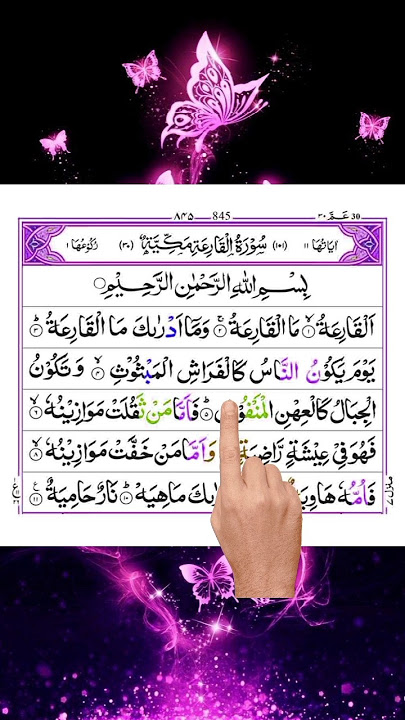 ٨٤٥ 845 ٣٠ عم 30
اٰيَاتُهَا ١١ (١٠١) سُوْرَةُ الْقَارِعَةِ مَكِّيَّةٌ (٣٠) رُكُوْعُهَا ١
بِسْمِ اللّٰهِ الرَّحْمٰنِ الرَّحِيْمِ
اَلْقَارِعَةُ ۙ‏﴿١﴾ مَا الْقَارِعَةُ ۚ‏﴿٢﴾ وَمَاۤ اَدْرٰىكَ مَا الْقَارِعَةُ ؕ‏﴿٣﴾
يَوْمَ يَكُوْنُ النَّاسُ كَالْفَرَاشِ الْمَبْثُوْثِ ۙ‏﴿٤﴾ وَتَكُوْنُ
الْجِبَالُ كَالْعِهْنِ الْمَنْفُوْشِ ؕ‏﴿٥﴾ فَاَمَّا مَنْ ثَقُلَتْ مَوَازِيْنُهٗ ۙ‏﴿٦﴾
فَهُوَ فِيْ عِيْشَةٍ رَّاضِيَةٍ وَاَمَّا مَنْ خَفَّتْ مَوَازِيْنُهٗ ۙ‏﴿٨﴾
فَاُمُّهٗ هَاوِيَةٌ مَاهِيَهْ ؕ‏﴿١٠﴾ نَارٌ حَامِيَةٌ ‏﴿١١﴾